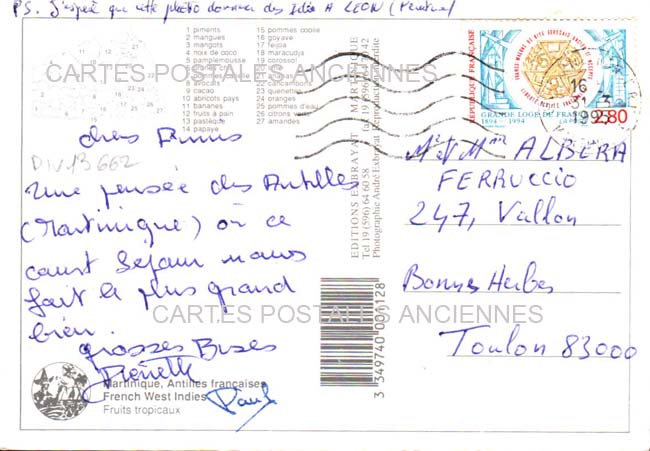 PS. J'espère que cette photo donnera des idées A LEON (Peintre)
1 piments
2 mangues
3 mangots
4 noix de coco
5 pamplemousse
9 cacao
10 abricots pays
11 bananes
12 fruits à pain
13 pastèque
14 papaye
15 pommes coolie
16 goyave
17 feijoa
18 maracudja
19 corossol
24 oranges
25 pommes d'eau
26 citrons verts
27 amandes
CARTES POSTALES ANCIENNES
DIV13662
chers Amis
Une pensée des Antilles
(Martinique) où ce
court séjour nous
fait le plus grand
bien.
grosses Bises
Pierrette
Paul
Martinique, Antilles françaises
French West Indies
Fruits tropicaux
EDITIONS EXBRAYAT - MARTINIQUE
Tél 19 (596) 64 60 58
Photographie André Exbrayat
3 349740 001128
RÉPUBLIQUE FRANÇAISE
GRANDE LOGE DE FRANCE
1894 - 1994
LA POSTE
2,80
16
31-3
1995
Mr et Mme ALBERA
FERRUCCIO
247, Vallon
Bonnes Herbes
Toulon 83000
CARTES POSTALES ANCIENNES